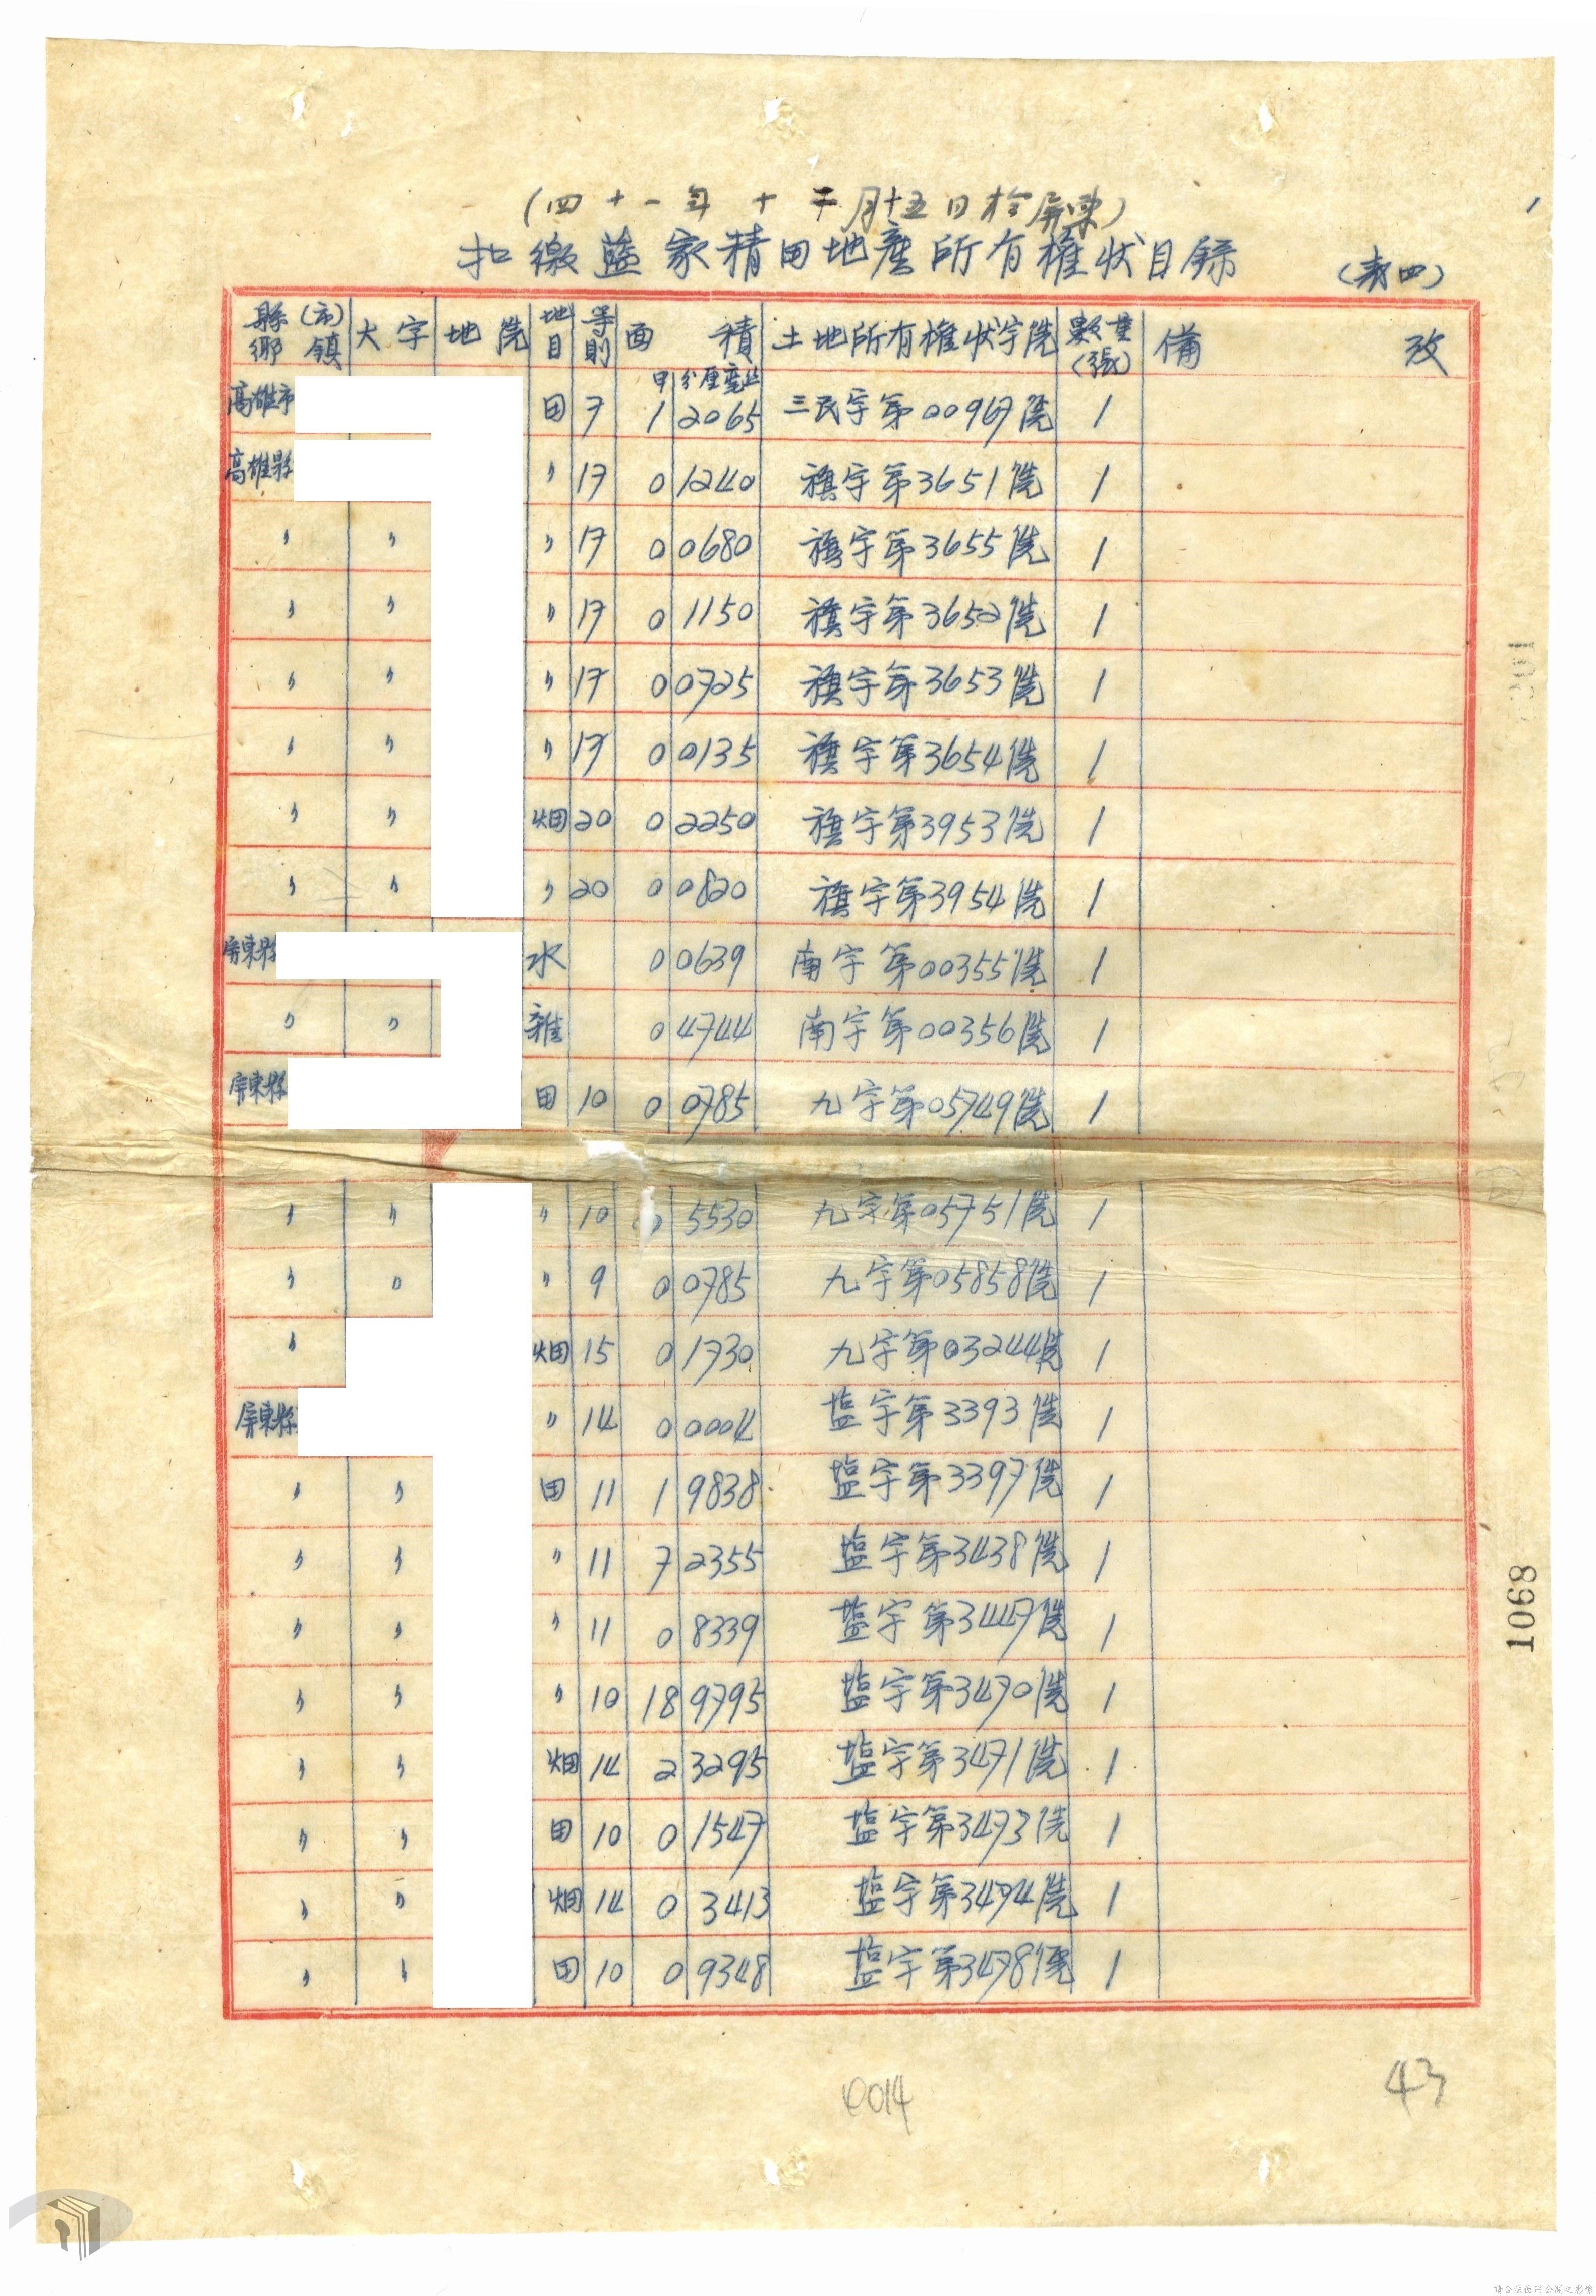 (四十一年十二月十五日於屏東)
扣繳藍家精田地產所有權狀目錄 (表四)
縣(市)鄉鎮 大字 地號 地目 等則 面積 土地所有權狀字號 數量(張) 備攷
甲 分厘毫丝
高雄市 田 7 1 2065 三民字第00967號 1
高雄縣 〃 17 0 1240 旗字第3651號 1
〃 〃 〃 17 0 0680 旗字第3655號 1
〃 〃 〃 17 0 1150 旗字第3652號 1
〃 〃 〃 17 0 0725 旗字第3653號 1
〃 〃 〃 17 0 0135 旗字第3654號 1
〃 〃 畑 20 0 2250 旗字第3953號 1
〃 〃 〃 20 0 0820 旗字第3954號 1
屏東縣 水 0 0639 南字第00355號 1
〃 〃 雜 0 4744 南字第00356號 1
屏東縣 田 10 0 0785 九字第05749號 1
〃 〃 〃 10 5530 九字第05751號 1
〃 〃 〃 9 0 0785 九字第05858號 1
〃 畑 15 0 1730 九字第03244號 1
屏東縣 〃 14 0 0004 塩字第3393號 1
〃 〃 田 11 1 9838 塩字第3397號 1
〃 〃 〃 11 7 2355 塩字第3438號 1
〃 〃 〃 11 0 8339 塩字第3447號 1
〃 〃 〃 10 18 9795 塩字第3470號 1
〃 〃 畑 14 2 3295 塩字第3471號 1
〃 〃 田 10 0 1547 塩字第3473號 1
〃 〃 畑 14 0 3413 塩字第3474號 1
〃 〃 田 10 0 9348 塩字第3478號 1
1068
0014
43
請合法使用公開之影像